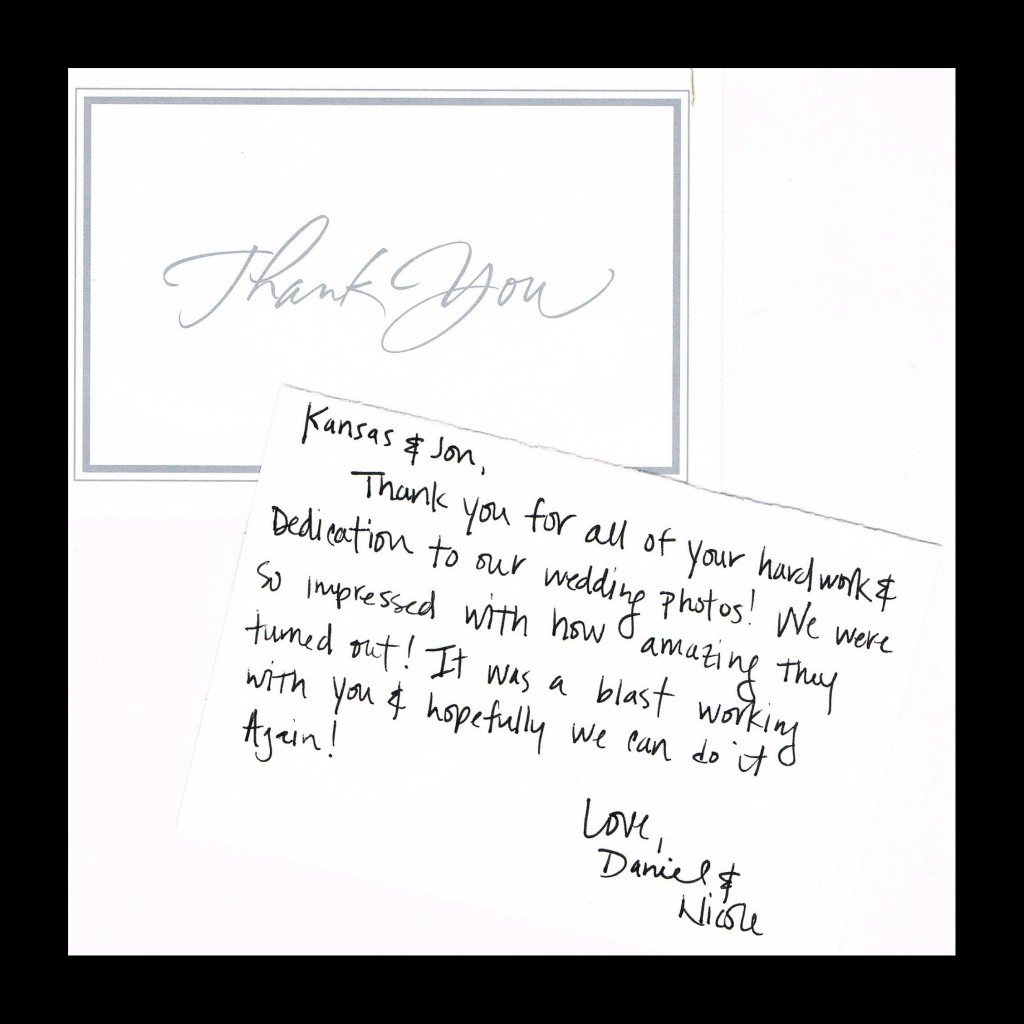 Thank You
Kansas & Jon,
Thank you for all of your hardwork &
Dedication to our wedding photos! We were
so impressed with how amazing they
turned out! It was a blast working
with you & hopefully we can do it
Again!
Love,
Daniel &
Nicole